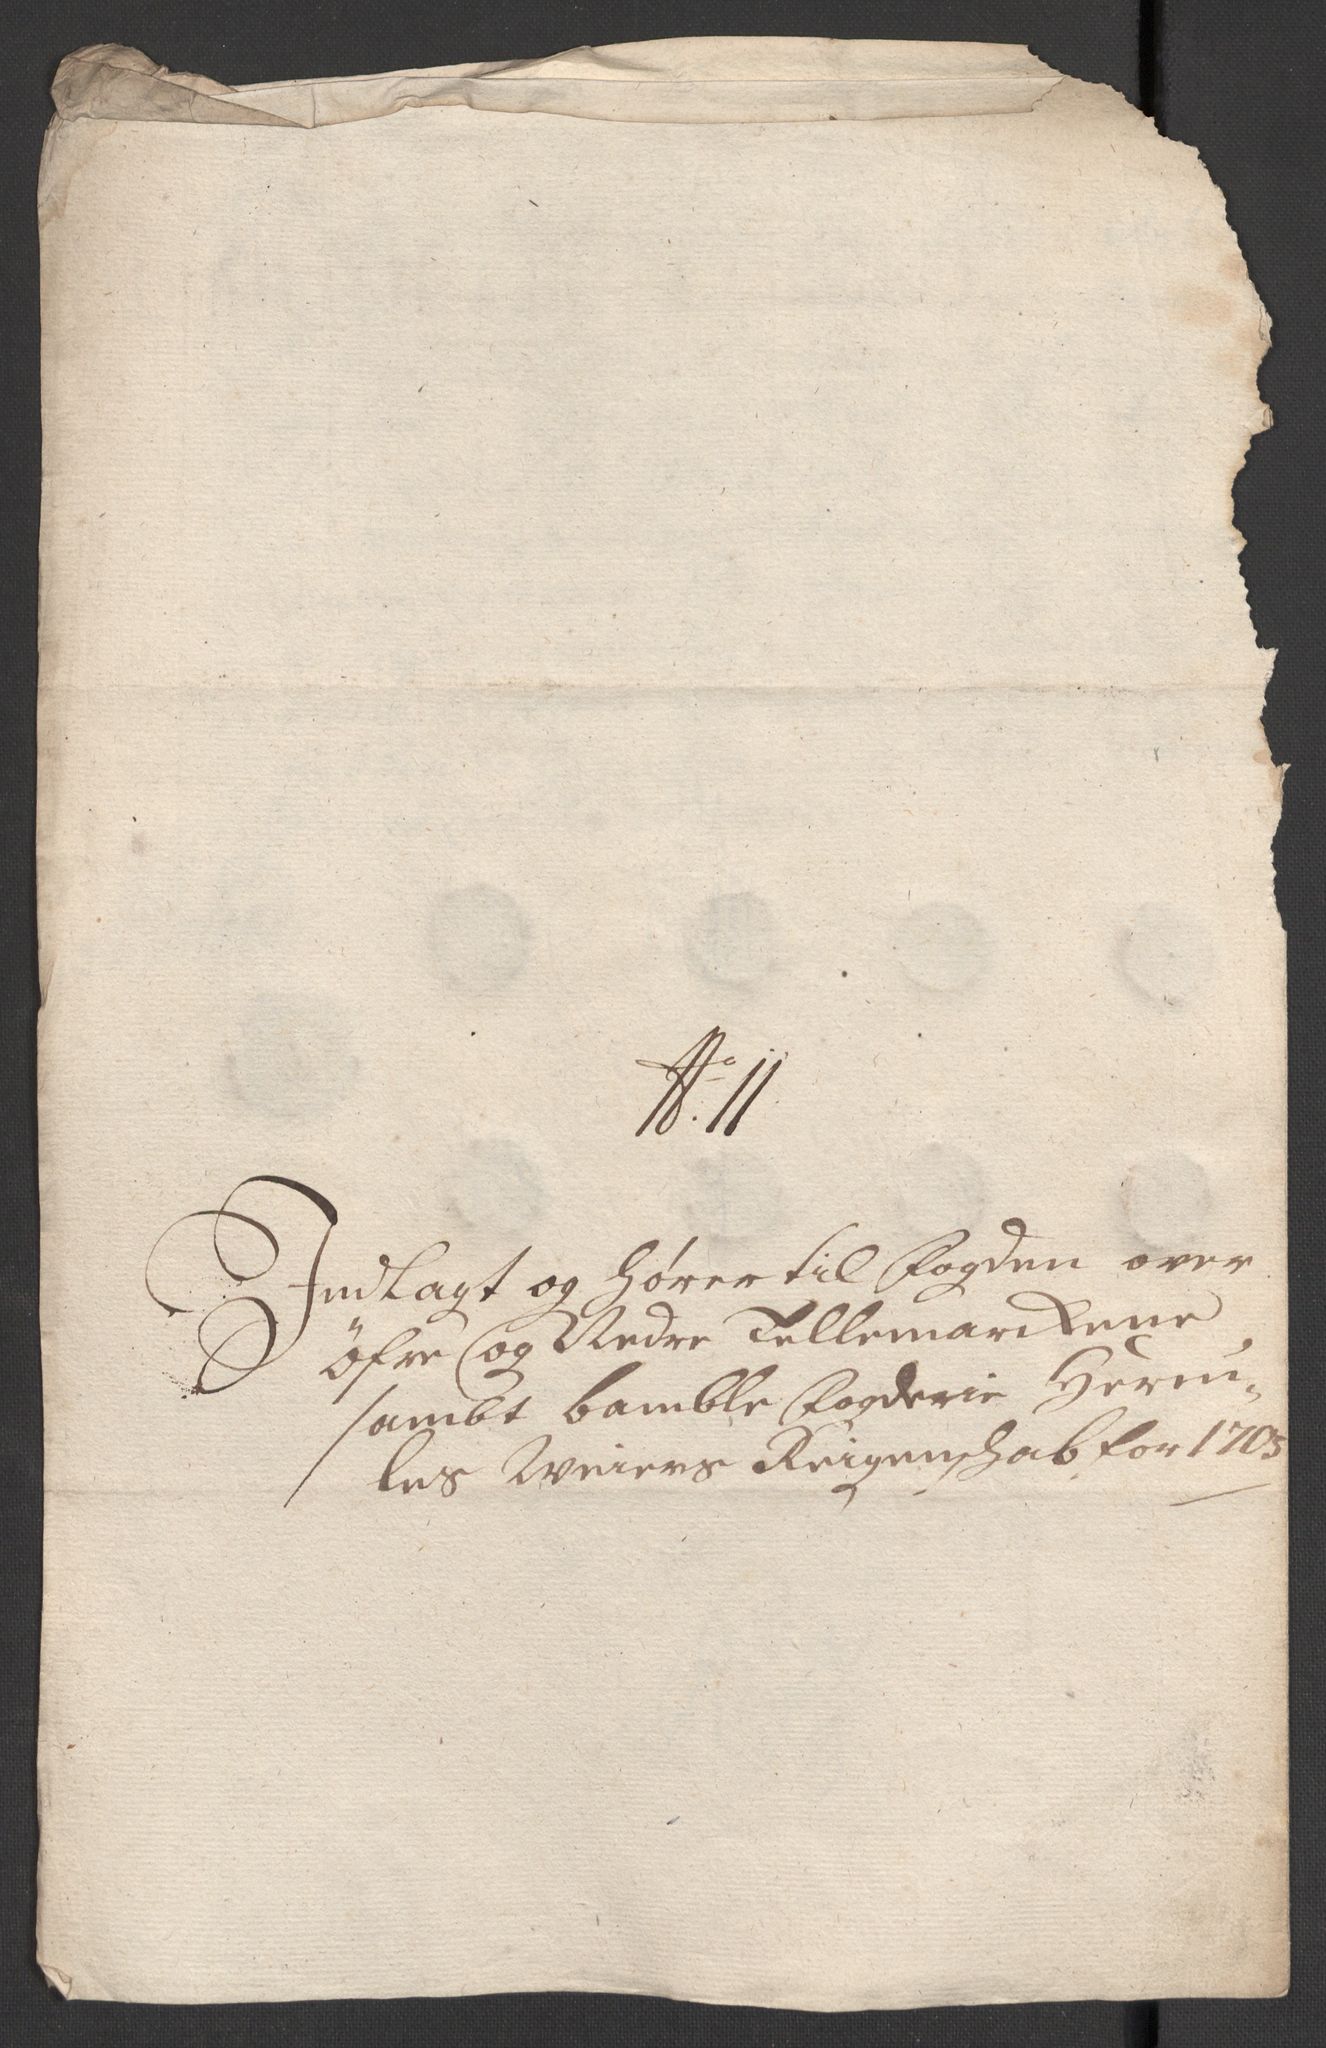 No. 11
Indlagt og hører til Fogden over
Øfre og Nedre Tellemarckene
sambt bamble Fogderie Hercu-
les Weiers Reigenschab for 1703